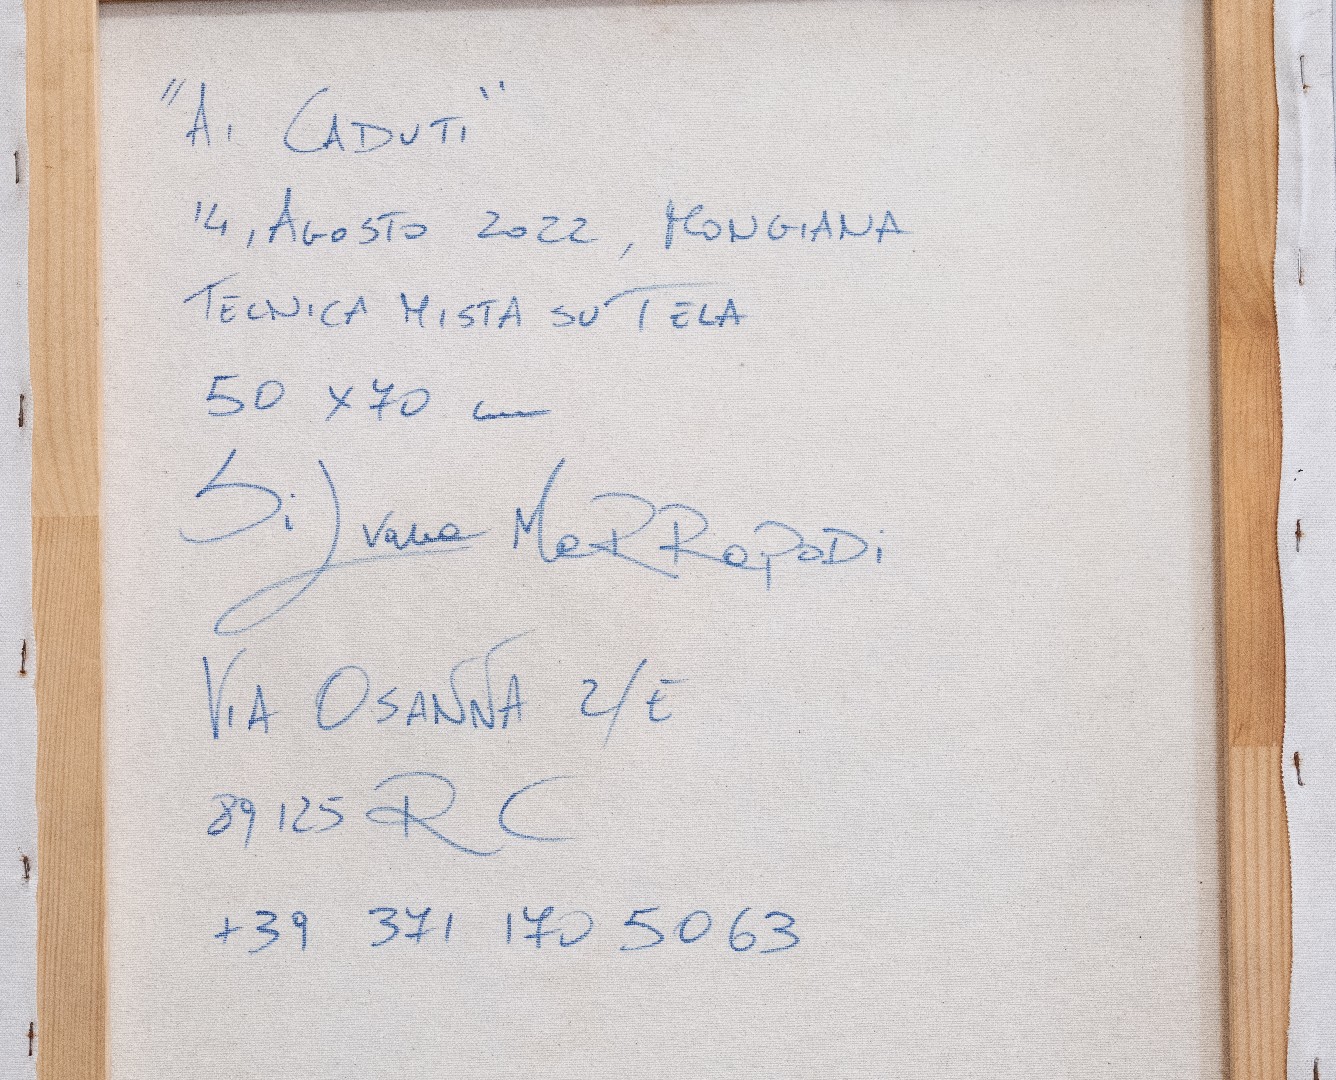 "Ai CADUTi"
14, AGOSTO 2022, MONGIANA
TECNICA MISTA SU TELA
50 x 70 cm
Silvana MaRRapoDi
ViA OSANNA 2/E
89125 RC
+39 371 170 5063